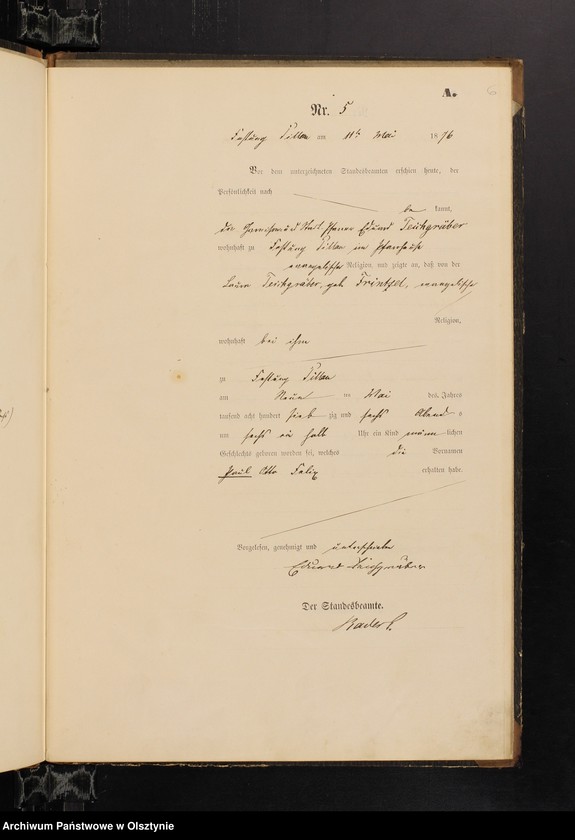 A.
Nr. 5
Festung Pillau am 11ten Mai 1876
Vor dem unterzeichneten Standesbeamten erschien heute, der
Persönlichkeit nach
be kannt,
der Garnison und Stadt Pfarrer Eduard Teichgräber
wohnhaft zu Festung Pillau im Pfarrhause
evangelischer Religion, und zeigte an, daß von der
Laura Teichgräber, geb. Frintzel, evangelischer
Religion,
wohnhaft bei ihm
zu Festung Pillau
am Neunten Mai des Jahres
tausend acht hundert sieb zig und sechs Abends
um sechs ein halb Uhr ein Kind männ lichen
Geschlechts geboren worden sei, welches die Vornamen
Paul Otto Felix erhalten habe.
Vorgelesen, genehmigt und unterschrieben
Eduard Teichgräber
Der Standesbeamte.
Archiwum Państwowe w Olsztynie